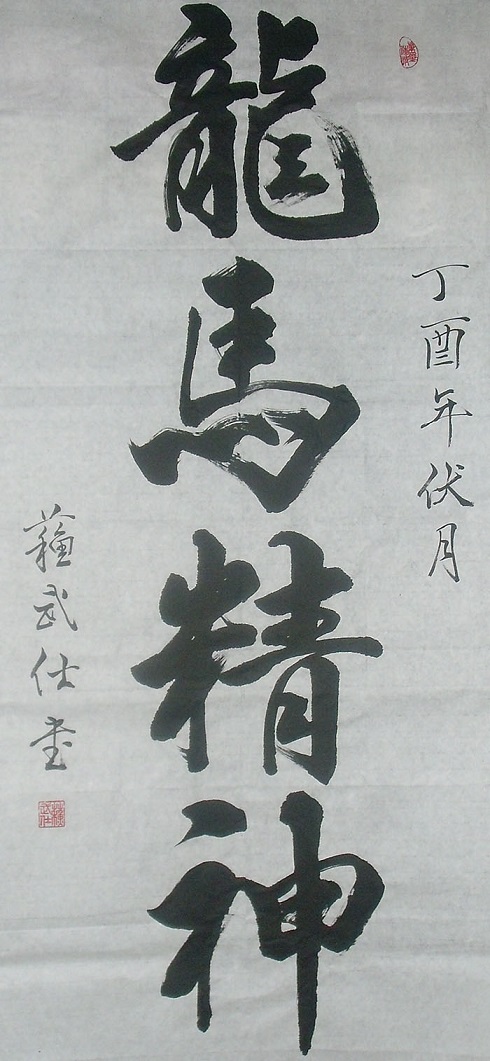 龍馬精神
丁酉年伏月
武仕书